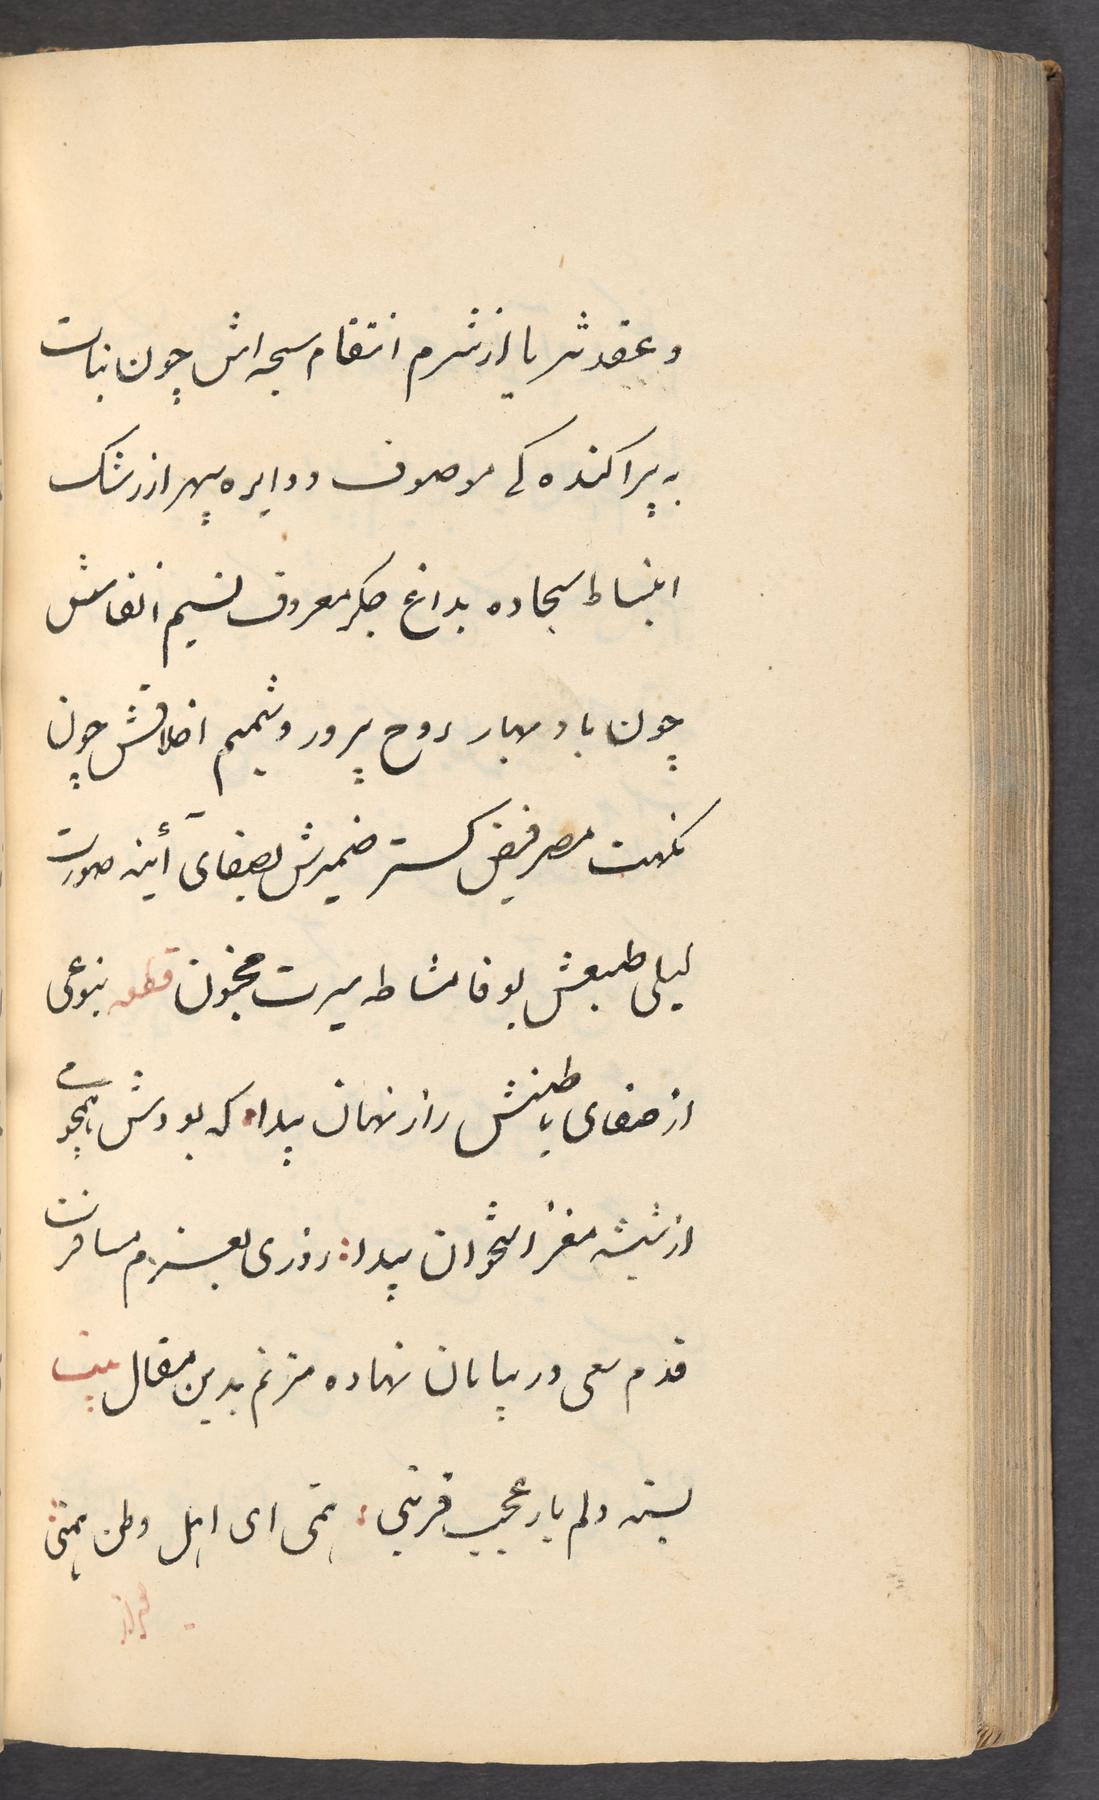 و عقد ثریا از شرم انتقام سبحه اش چون بنات
به پراکنده کی موصوف و دایره سپهر از رشک
انبساط سجاده بداغ جگر معروف نسیم انفاسش
چون باد بهار روح پرور و شمیم اخلاقش چون
نکهت مصر فیض کستر ضمیرش بصفای آئینه صورت
لیلی طبعش بوفا مشاطه سیرت مجنون قطعه بنوعی
از صفای باطنش راز نهان پیدا که بودش همچو می
از شیشه مغز استخوان پیدا روزی بعزم مسافرت
قدم سعی در بیابان نهاده مترنم بدین مقال بیت
بسته دلم بار عجب قربتی همتی ای اهل وطن همتی